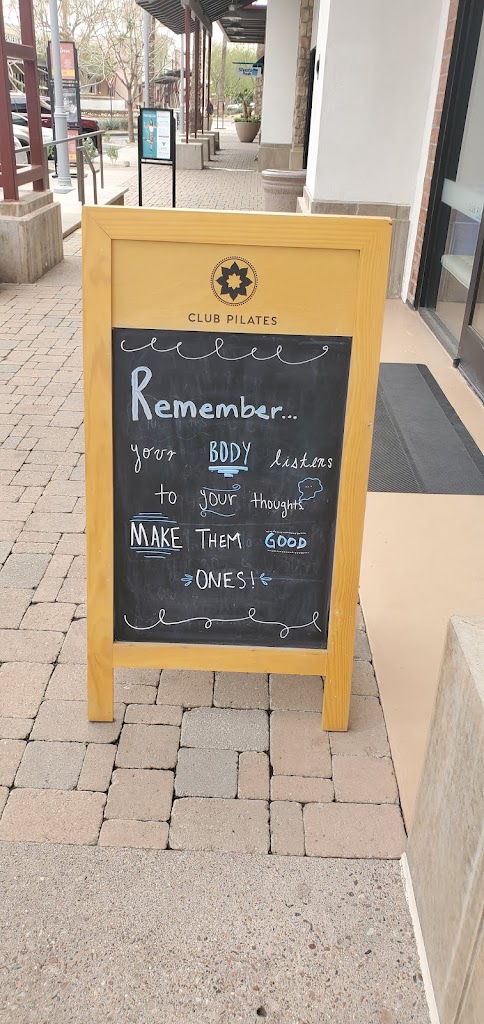 CLUB PILATES
Remember...
your BODY listens
to your thoughts
MAKE THEM GOOD
ONES!